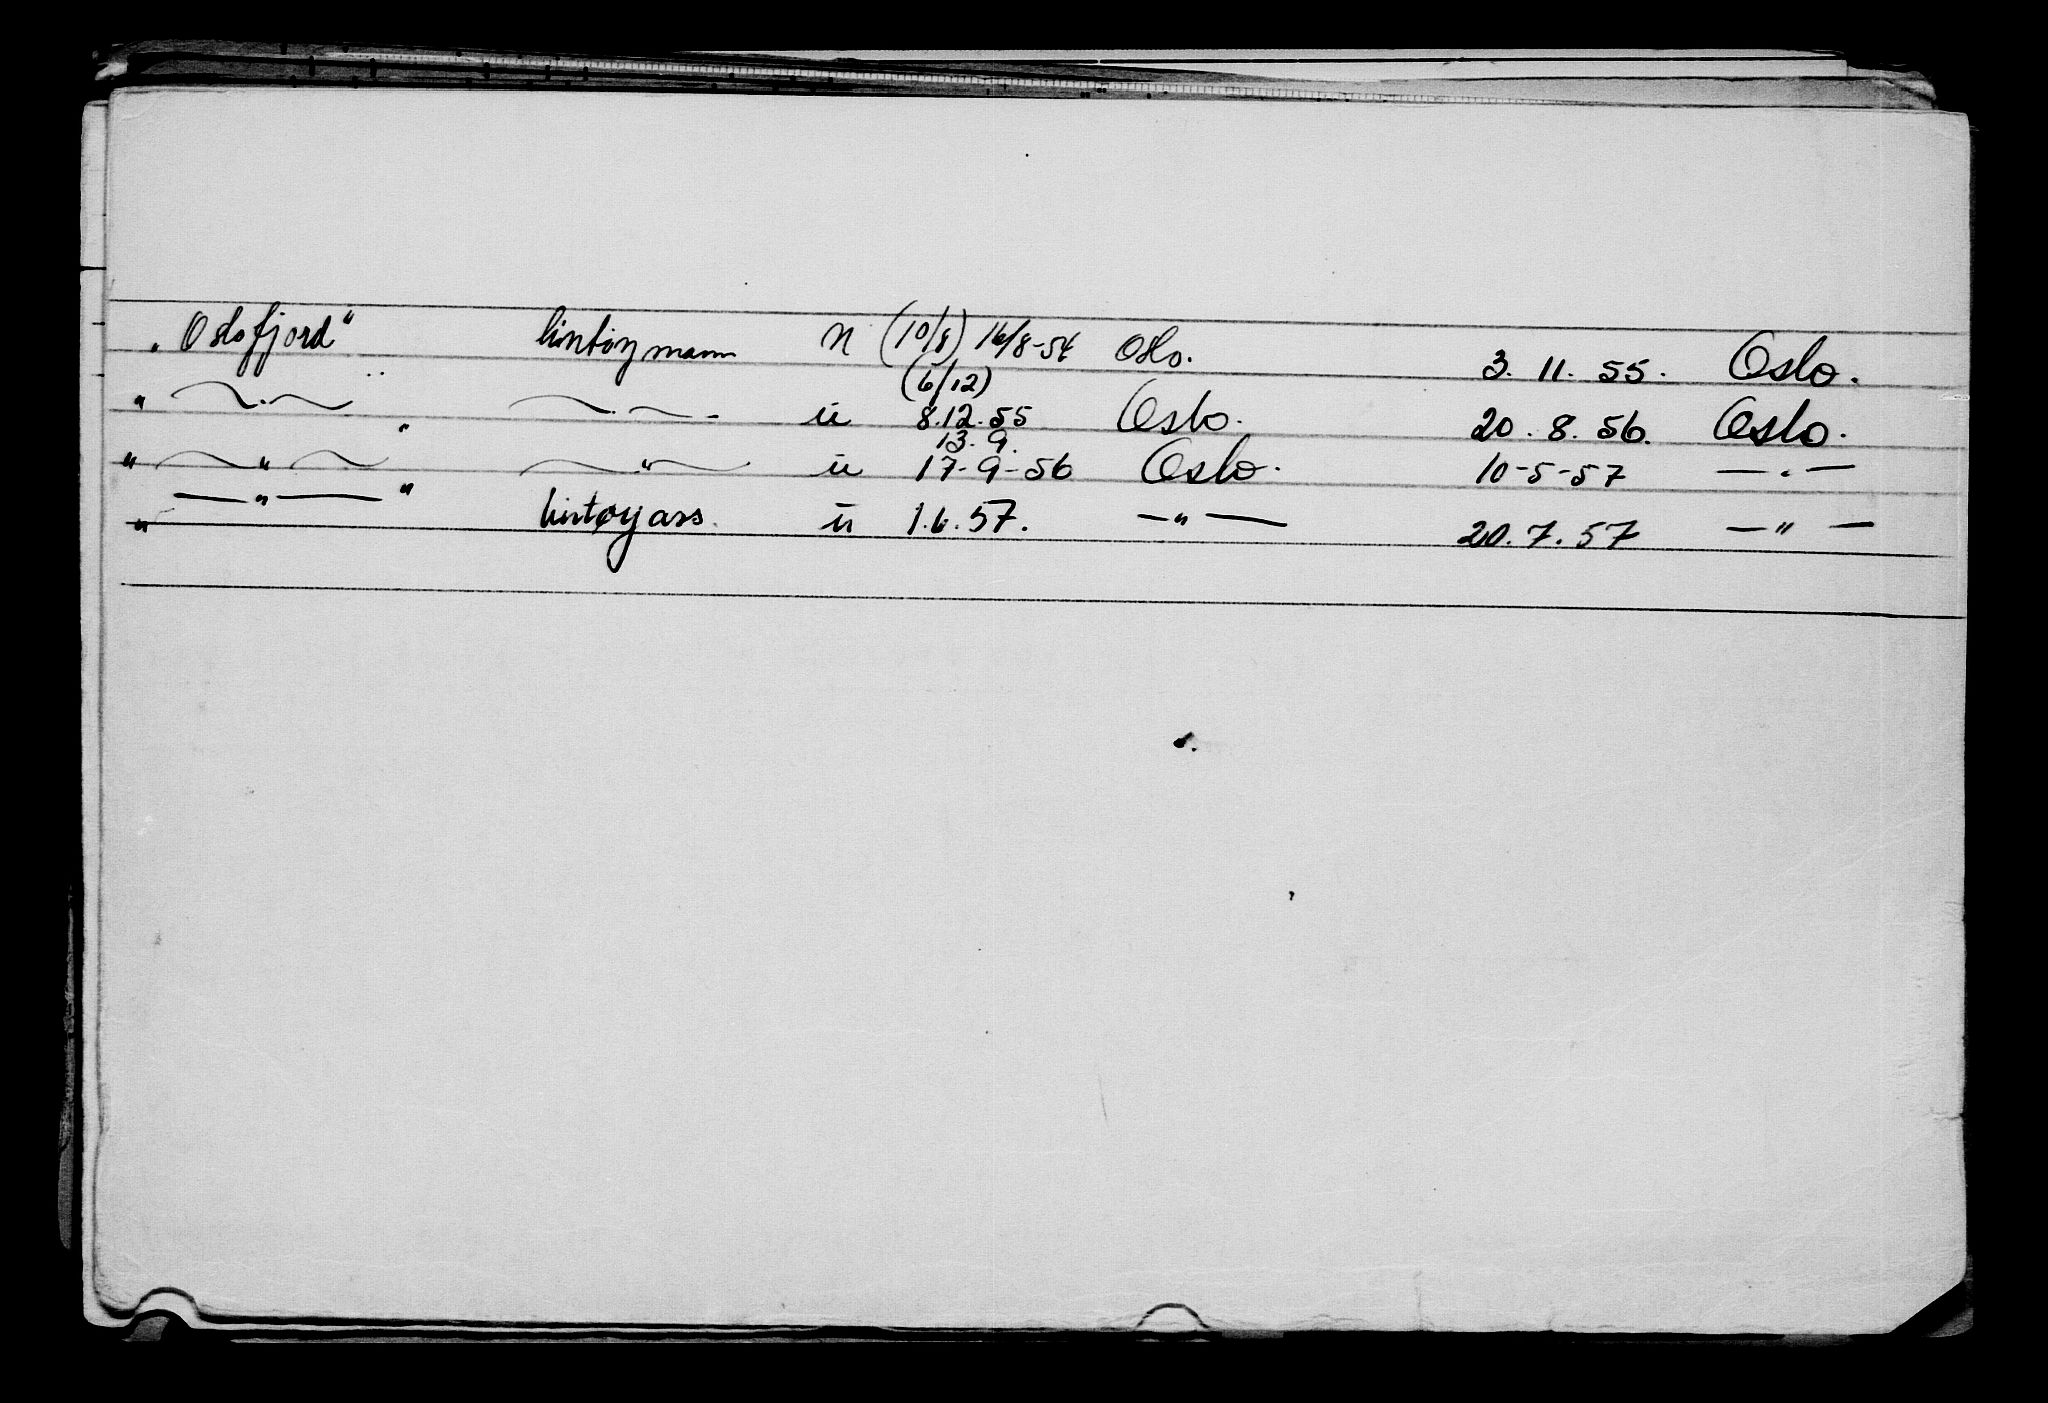 „Oslofjord" lintøymann n (10/8) 16/8-54 Oslo. 3. 11. 55. Oslo.
(6/12)
" —.— " —.— ü 8.12.55 Oslo. 20. 8. 56. Oslo.
13.9.
" —"— " —"— ü 17-9-56 Oslo. 10-5-57 —.—
" —"— " lintøyass. ü 1.6.57. —"— 20.7.57 —"—